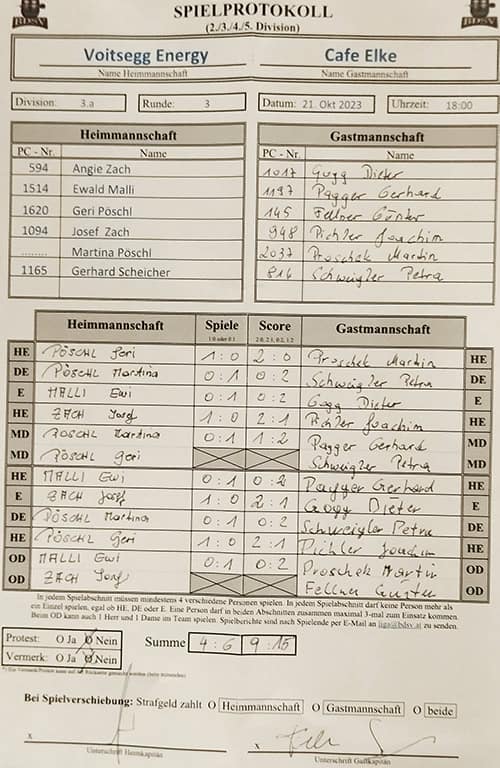 BDSV SPIELPROTOKOLL BDSV
(2./3./4./5. Division)
Voitsegg Energy Cafe Elke
Name Heimmannschaft Name Gastmannschaft
Division: 3.a Runde: 3 Datum: 21. Okt 2023 Uhrzeit: 18:00
Heimmannschaft Gastmannschaft
PC - Nr. Name PC - Nr. Name
594 Angie Zach 1017 Gugg Dieter
1514 Ewald Malli 1197 Pagger Gerhard
1620 Geri Pöschl 145 Fellner Günter
1094 Josef Zach 948 Pichler Joachim
........ Martina Pöschl 2037 Proschek Martin
1165 Gerhard Scheicher 816 Schweigler Petra
Heimmannschaft Spiele Score Gastmannschaft
1:0 oder 0:1 2:0, 2:1, 0:2, 1:2
HE PÖSCHL Geri 1:0 2:0 Proschek Martin HE
DE PÖSCHL Martina 0:1 0:2 Schweigler Petra DE
E MALLI Ewi 0:1 0:2 Gugg Dieter E
HE ZACH Josef 1:0 2:1 Pichler Joachim HE
MD PÖSCHL Martina 0:1 1:2 Pagger Gerhard MD
MD PÖSCHL Geri Schweigler Petra MD
HE MALLI Ewi 0:1 0:2 Pagger Gerhard HE
E ZACH Josef 1:0 2:1 Gugg Dieter E
DE PÖSCHL Martina 0:1 0:2 Schweigler Petra DE
HE PÖSCHL Geri 1:0 2:1 Pichler Joachim HE
OD MALLI Ewi 0:1 0:2 Proschek Martin OD
OD ZACH Josef Fellner Günter OD
In jedem Spielabschnitt müssen mindestens 4 verschiedene Personen spielen. In jedem Spielabschnitt darf keine Person mehr als
ein Einzel spielen, egal ob HE, DE oder E. Eine Person darf in beiden Abschnitten zusammen maximal 3-mal zum Einsatz kommen.
Beim OD kann auch 1 Herr und 1 Dame im Team spielen. Spielberichte sind nach Spielende per E-Mail an liga@bdsv.at zu senden.
Protest: O Ja O Nein Summe 4:6 9:15
Vermerk: O Ja O Nein
Bei Spielverschiebung: Strafgeld zahlt O Heimmannschaft O Gastmannschaft O beide
x x
Unterschrift Heimkapitän Unterschrift Gastkapitän